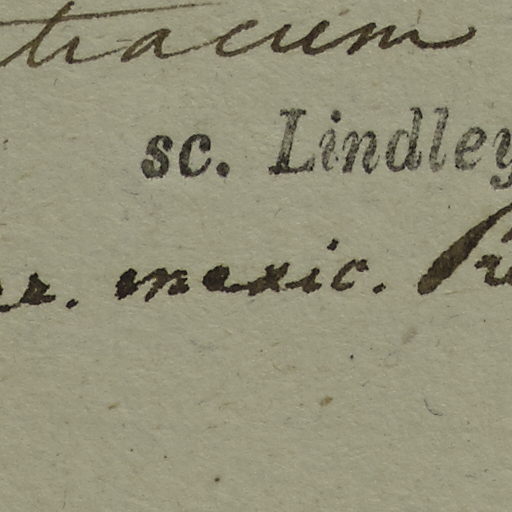 tracum
sc. Lindley
mexic.